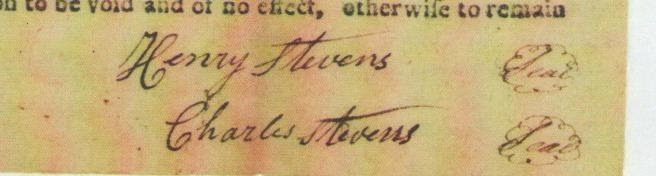 on to be void and of no effect, otherwiſe to remain
Henry Stevens Seal
Charles Stevens Seal